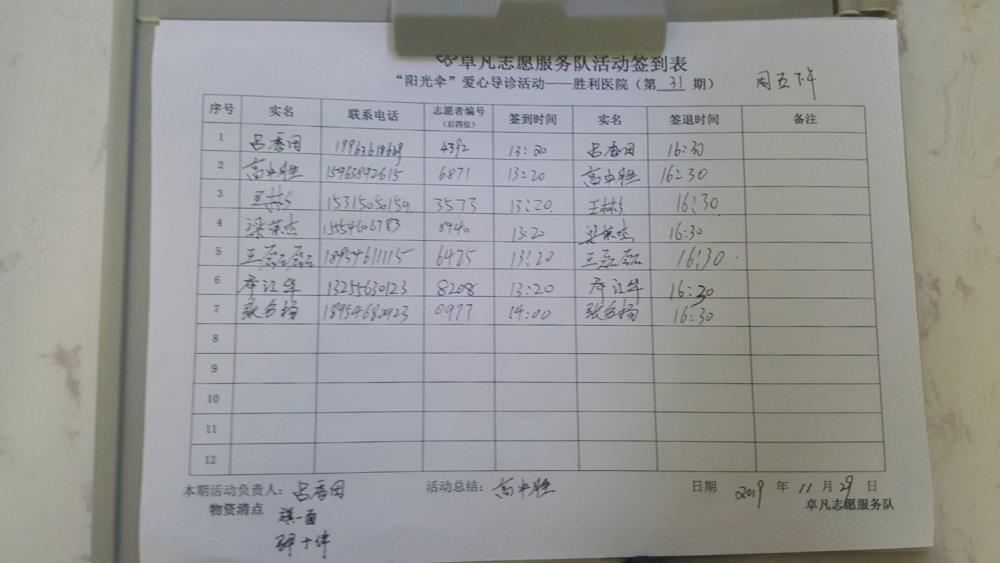 卓凡志愿服务队活动签到表
“阳光伞”爱心导诊活动——胜利医院（第 31 期） 周五下午
序号 实名 联系电话 志愿者编号（后四位） 签到时间 实名 签退时间 备注
1 吕香团 4392 13:20 吕香团 16:30
2 高中胜 15963892615 6871 13:20 高中胜 16:30
3 王林 15315050159 3573 13:20 王林 16:30
4 梁荣杰 15554606783 8940 13:20 梁荣杰 16:30
5 王磊磊 18954611115 6475 13:20 王磊磊 16:30
6 13255630123 8208 13:20 16:30
7 18954682923 0977 14:00 16:30
8
9
10
11
12
本期活动负责人： 吕香团 活动总结： 高中胜 日期 2019 年 11 月 29 日
物资清点 旗一面 卓凡志愿服务队